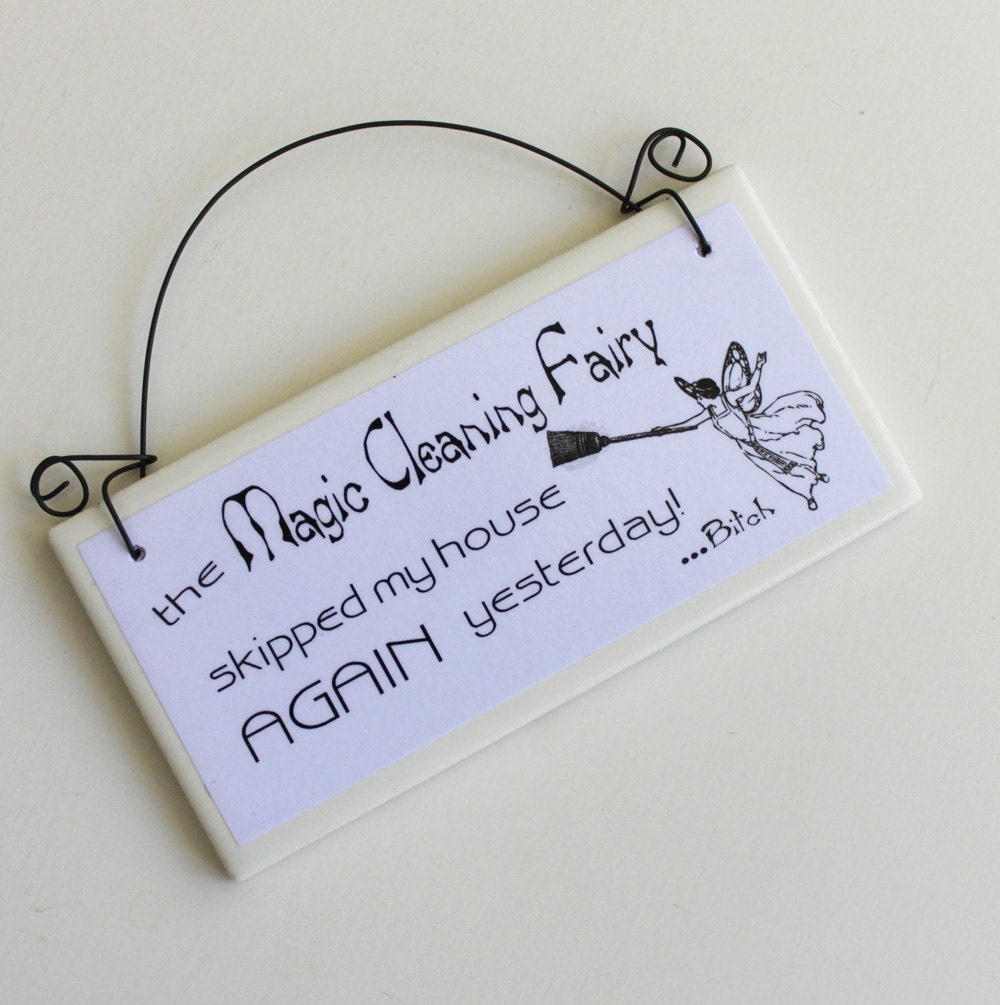 the Magic Cleaning Fairy
skipped my house
AGAIN yesterday!
...Bitch